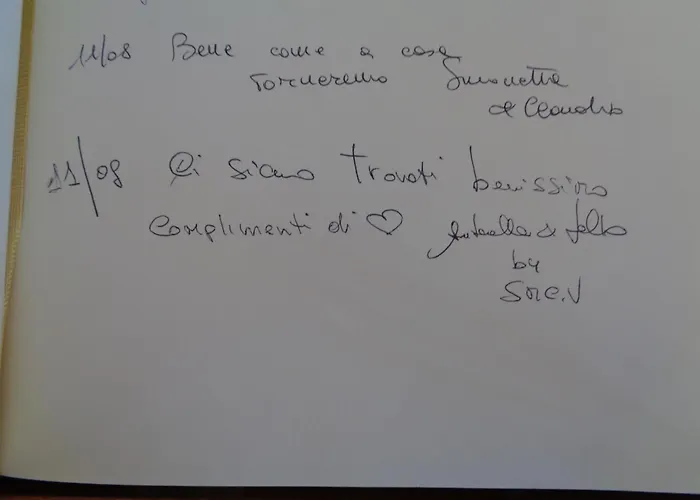 11/08 Bene come a casa
Torneremo Simonetta
& Leandro
11/08 Ci siamo trovati benissimo
Complimenti di ♡
by